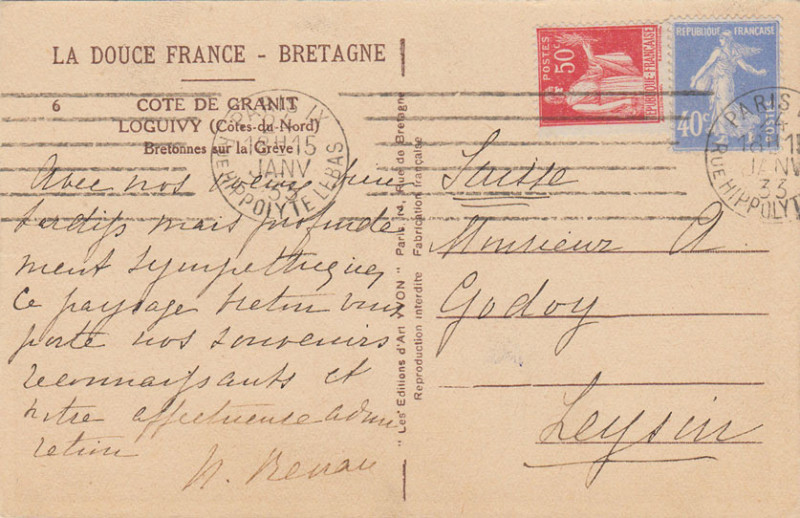 LA DOUCE FRANCE - BRETAGNE
6 COTE DE GRANIT
LOGUIVY (Côtes-du-Nord)
Bretonnes sur la Grève
Avec nos vœux bien
tardifs mais profondé
ment sympathiques
Ce paysage breton vous
porte nos souvenirs
reconnaissants et
notre affectueuse admi
ration
"Les Editions d'Art YVON" Paris, 14, Rue de Bretagne
Reproduction interdite Fabrication française
POSTES
50c
REPUBLIQUE-FRANÇAISE
REPUBLIQUE FRANÇAISE
40c
POSTES
PARIS IX
15
JANV
33
RUE HIPPOLYTE LEBAS
PARIS
15
JANV
33
RUE HIPPOLYT
Suisse
Monsieur A.
Godoy
Leysin